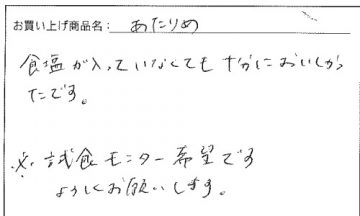 お買い上げ商品名: あたりめ
食塩が入っていなくても十分においしかっ
たです。
※試食モニター希望です
よろしくお願いします。